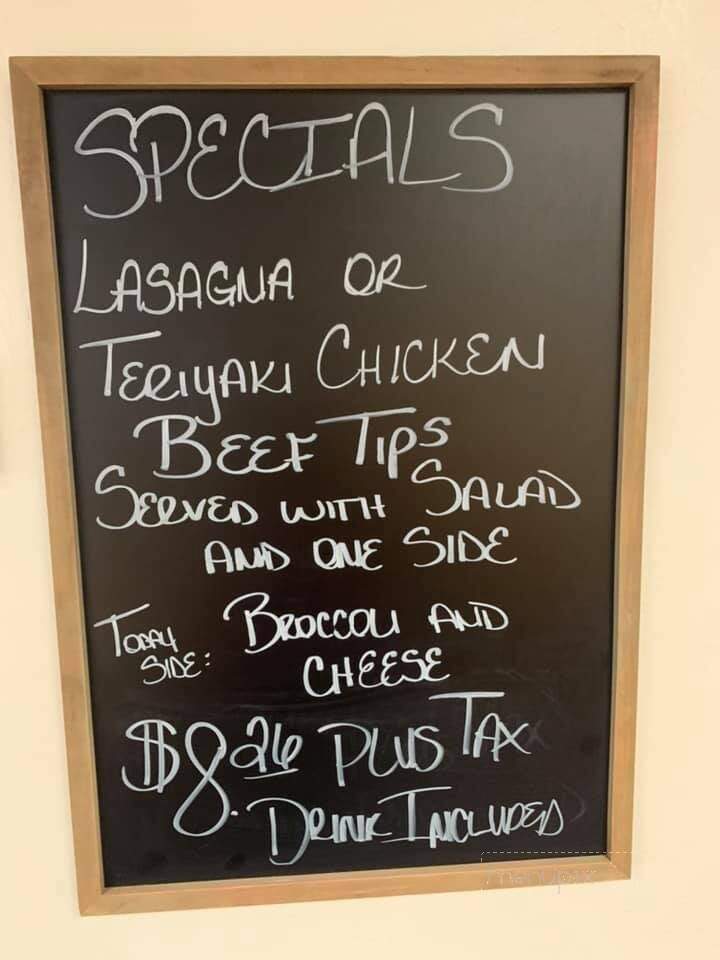 SPECIALS
LASAGNA OR
TERIYAKI CHICKEN
BEEF TIPS
SERVED WITH SALAD
AND ONE SIDE
TODAY BROCCOLI AND
SIDE: CHEESE
$8.26 PLUS TAX
DRINK INCLUDED